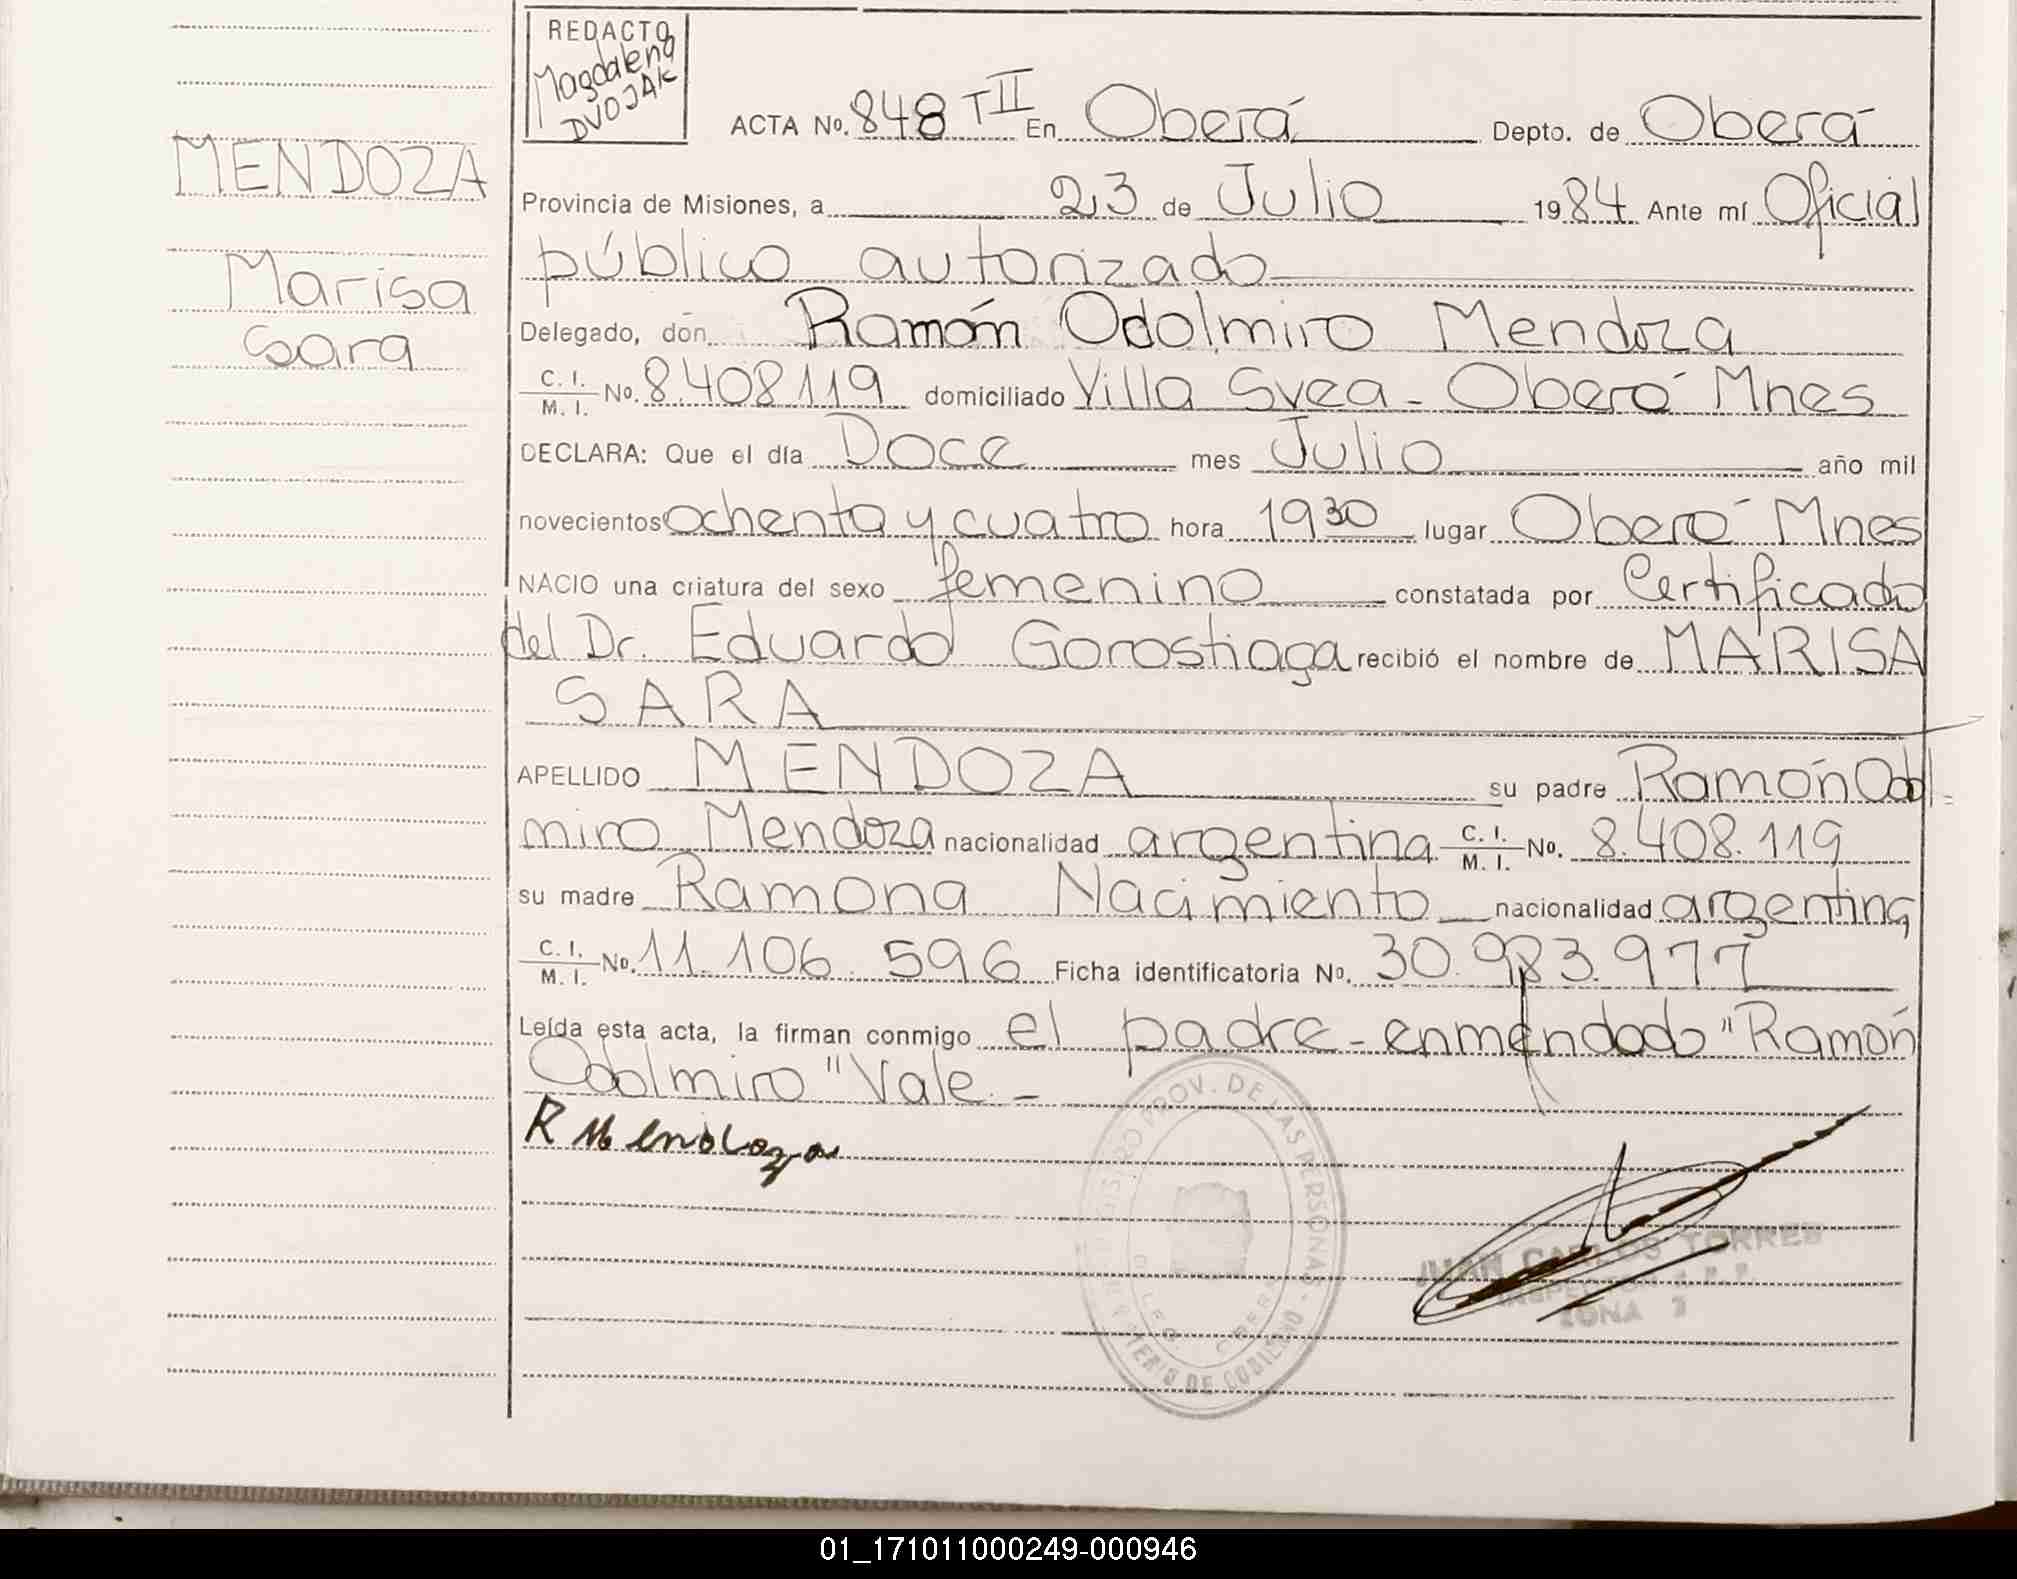 REDACTO
Magdalena
DVOJAK
ACTA No. 848 TII En Oberá Depto. de Oberá
MENDOZA
Marisa
Sara
Provincia de Misiones, a 23 de Julio 1984 Ante mí Oficial
público autorizado
Delegado, don Ramón Odolmiro Mendoza
C. I. / M. I. No. 8.408.119 domiciliado Villa Svea - Oberá Mnes
DECLARA: Que el día Doce mes Julio año mil
novecientos ochenta y cuatro hora 19 30 lugar Oberá Mnes
NACIO una criatura del sexo femenino constatada por Certificado
del Dr. Eduardo Gorostiaga recibió el nombre de MARISA
SARA
APELLIDO MENDOZA su padre Ramón Odol-
miro Mendoza nacionalidad argentina C. I. / M. I. No. 8.408.119
su madre Ramona Nacimiento nacionalidad argentina
C. I. / M. I. No. 11.106.596 Ficha identificatoria No. 30.983.977
Leída esta acta, la firman conmigo el padre - enmendado "Ramón
Odolmiro" Vale. -
R Mendoza
REGISTRO PROV. DE LAS PERSONAS - MINISTERIO DE GOBIERNO
JUAN CARLOS TORRES
ZONA
01_171011000249-000946